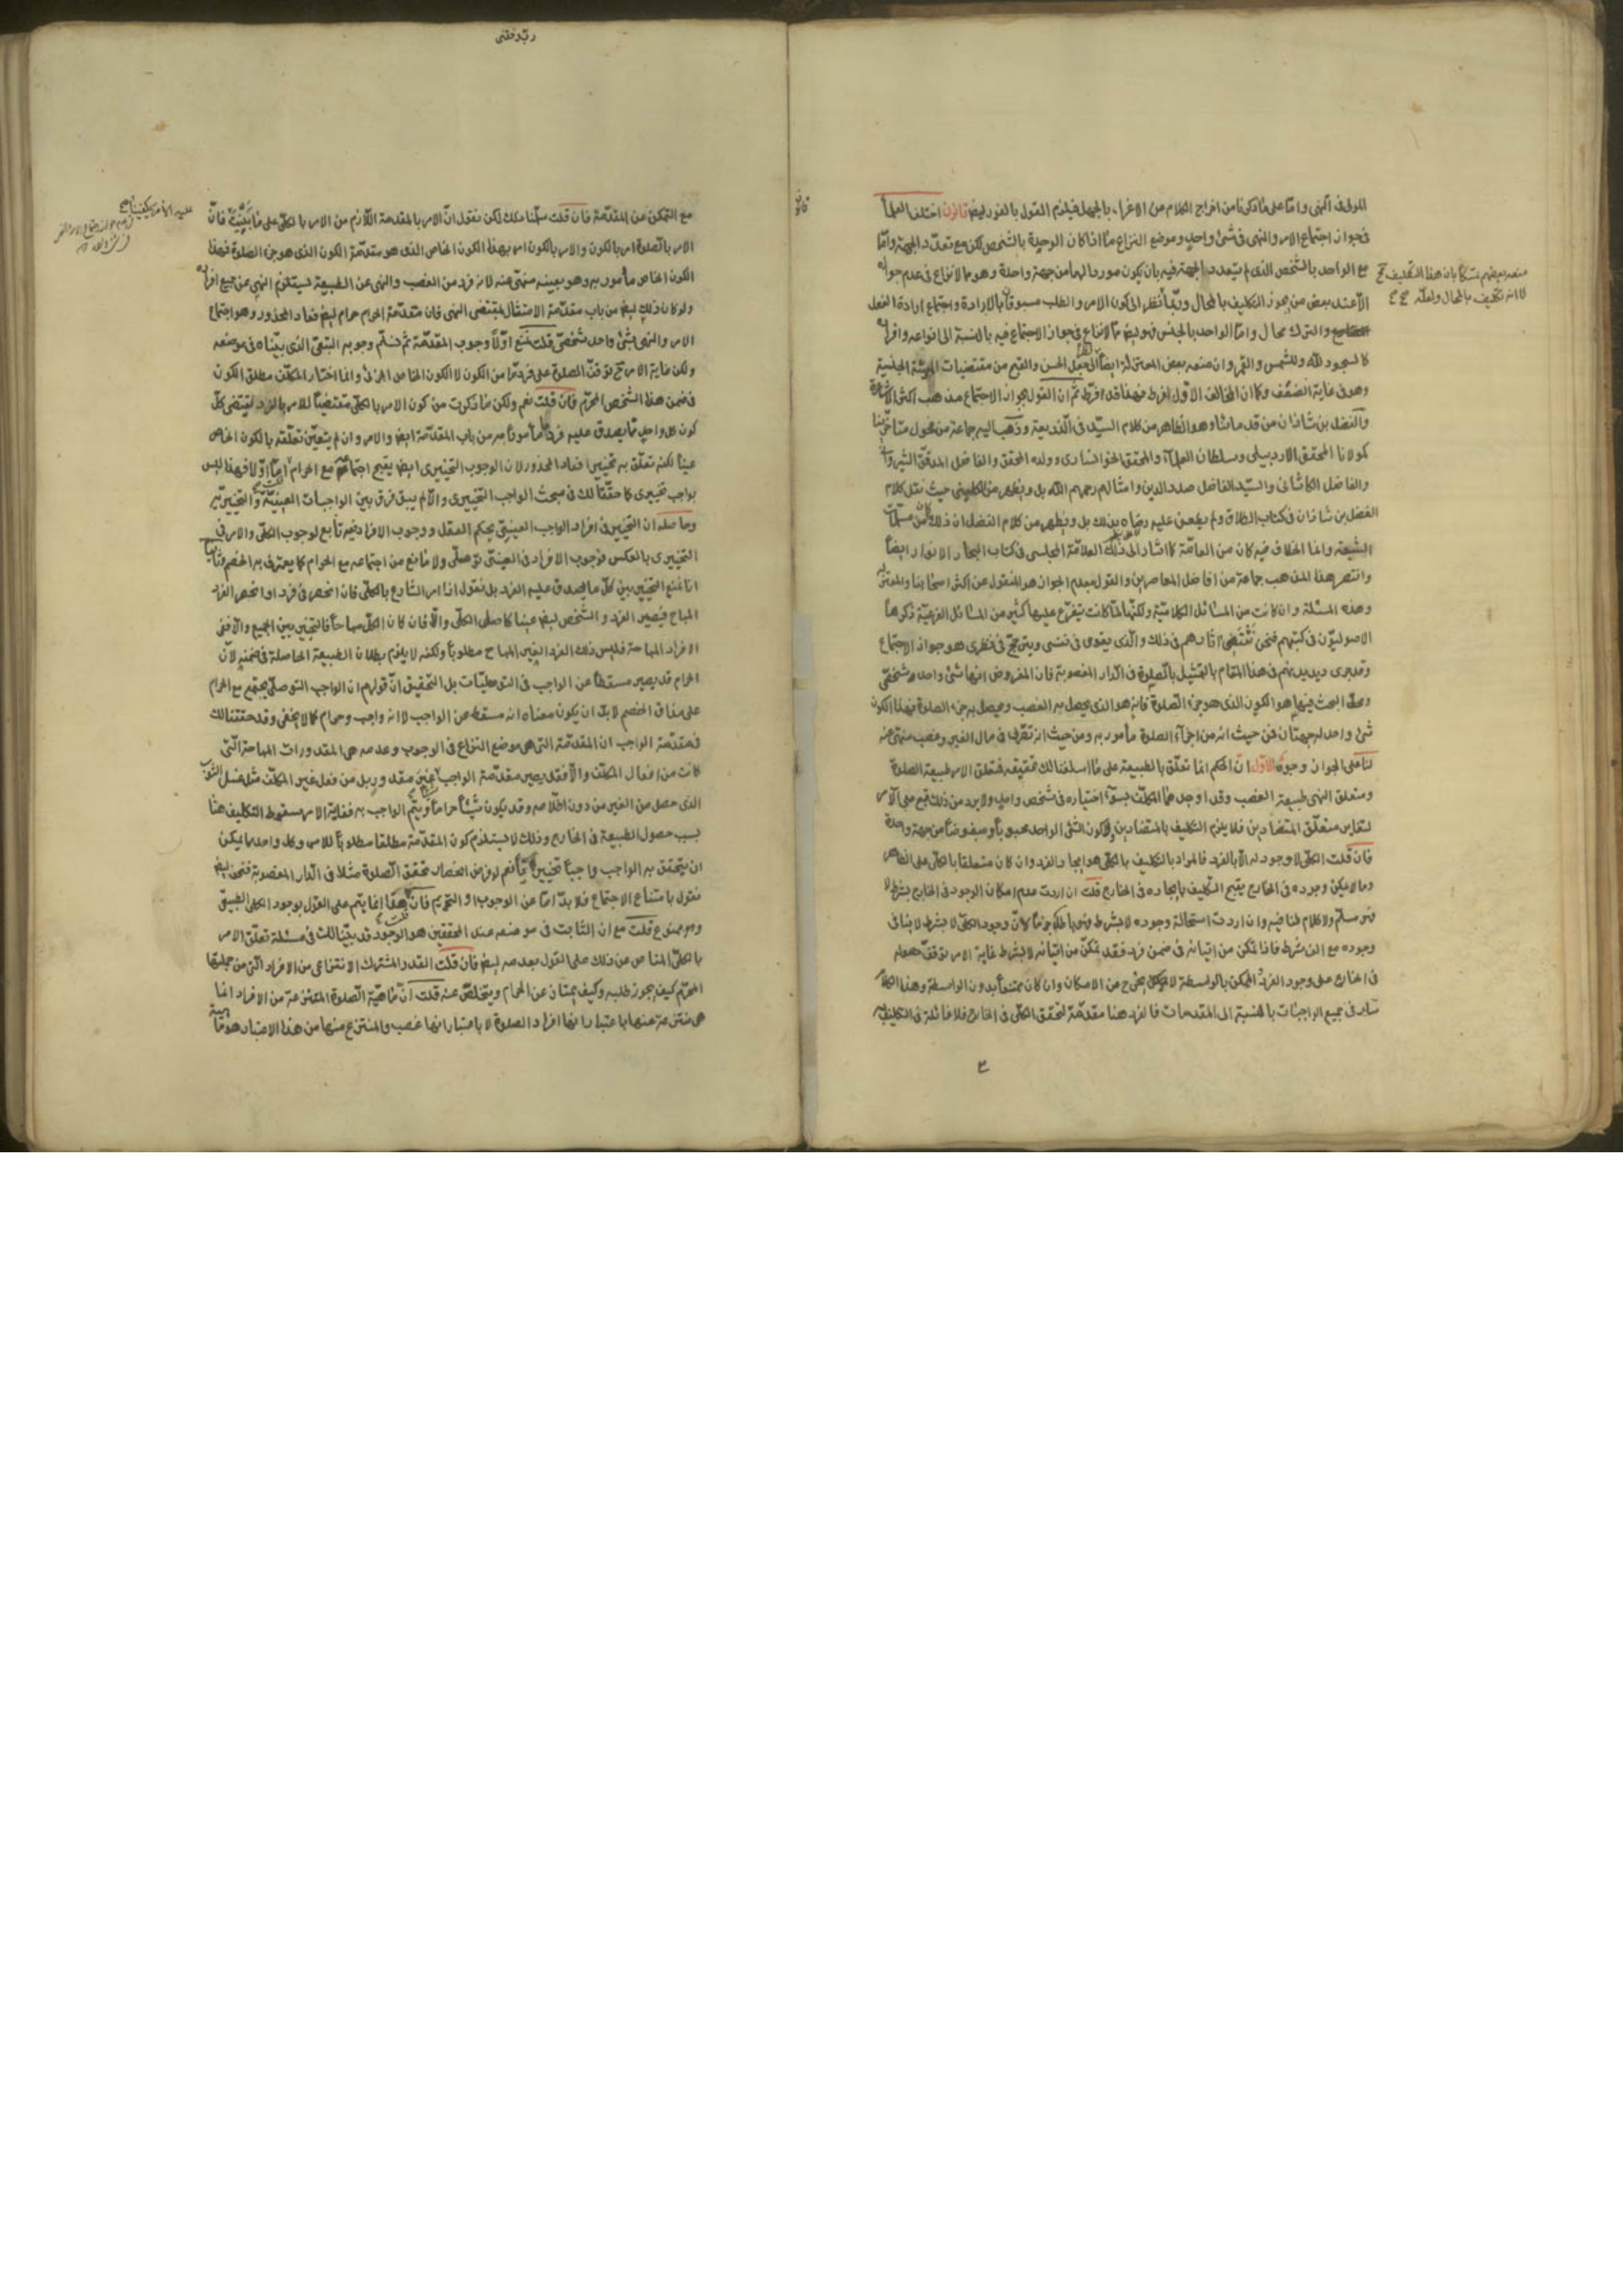 المولى في النهى واما على ما ذكرنا من اخراج الكلام عن الاغراء بالجهل فيلزم القول بالفور ايض قانون اختلف العلماء
في جواز اجتماع الامر والنهى في شئ واحد وموضع النزاع ما اذا كان الوحدة بالشخص لكن مع تعدد الجهة واما
مع الواحد بالشخص الذى لم يتعدد الجهة فيه بان يكون موردا لهما من جهة واحدة وهو مما لا نزاع في عدم جوازه
الا عند بعض من يجوز التكليف بالمحال وربما نظر الى كون الامر والطلب مسبوقا بالارادة واجتماع ارادة الفعل
والترك محال واما الواحد بالجنس فهو ايض مما لا نزاع في جواز الاجتماع فيه بالنسبة الى انواعه وافراده
كالسجود لله وللشمس والقمر وان منعه بعض المعتزلة ايضا الى جعل الحسن والقبح من مقتضيات الجنسية
وهو في غاية الضعف وكان المخالف الاول افرط فهذا قد افرط ثم ان القول بجواز الاجتماع مذهب اكثر الاشاعرة
والفضل بن شاذان من قدمائنا وهو الظاهر من كلام السيد في الذريعة وذهب اليه جماعة من فحول متاخرينا
كمولانا المحقق الاردبيلى وسلطان العلماء والمحقق الخوانسارى وولده المحقق والفاضل المدقق الشيروانى
والفاضل الكاشانى والسيد الفاضل صدر الدين وامثالهم رحمهم الله بل ويظهر من الكلينى حيث نقل كلام
الفضل بن شاذان في كتاب الطلاق ولم يطعن عليه رضاه بذلك بل ويظهر من كلام الفضل ان ذلك كان من مسلمات
الشيعة وانما الخلاف فيه كان من العامة كما اشار الى ذلك العلامة المجلسى في كتاب البحار الانوار ايضا
وانتصر هذا المذهب جماعة من افاضل المعاصرين والقول بعدم الجواز هو المنقول عن اكثر اصحابنا والمعتزلة
وهذه المسئلة وان كانت من المسائل الكلامية ولكنها لما كانت يتفرع عليها كثير من المسائل الفرعية ذكرها
الاصوليون في كتبهم فنحن نقتفى اثارهم في ذلك والذى يقوى في نفسى ويترجح في نظرى هو جواز الاجتماع
وقد جرى ديدنهم في هذا المقام بالتمثيل بالصلوة في الدار المغصوبة فان المفروض انها شئ واحد شخصى
ومحل البحث فيها هو الكون الذى هو جزء الصلوة فانه هو الذى يحصل به الغصب ويحصل به جزء الصلوة فهذا الكون
شئ واحد له جهتان فمن حيث انه من اجزاء الصلوة مأمور به ومن حيث انه تصرف في مال الغير وغصب منهى عنه
لنا على الجواز وجوه الاول ان الحكم انما تعلق بالطبيعة على ما اسلفنا لك تحقيقه فمتعلق الامر طبيعة الصلوة
ومتعلق النهى طبيعة الغصب وقد اوجدهما المكلف بسوء اختياره في شخص واحد ولا يرد من ذلك قبح على الامر
لتغاير متعلق المتضادين فلا يلزم التكليف بالمتضادين ولا كون الشئ الواحد محبوبا ومبغوضا من جهة واحدة
فان قلت الكلى لا وجود له الا بالفرد فالمراد بالتكليف بالكلى هو ايجاد الفرد وان كان متعلقا بالكلى على الظاهر
وما لا يمكن وجوده في الخارج يقبح التكليف بايجاده في الخارج قلت ان اردت عدم امكان الوجود في الخارج بشرط لا
فهو مسلم ولا كلام لنا فيه وان اردت استحالة وجوده لا بشرط فهو باطل جزما لان وجود الكلى لا بشرط لا ينافى
وجوده مع الف شرط فاذا تمكن من اتيانه في ضمن فرد فقد تمكن من اتيانه لا بشرط غاية الامر توقف حصوله
في الخارج على وجود الفرد الممكن بالواسطة لا يخرج من الامكان وان كان ممتنعا بدون الواسطة وهذا الكلام
سار في جميع الواجبات بالنسبة الى المقدمات فالفرد هنا مقدمة لتحقق الكلى في الخارج فلا غائلة في التكليف به
مع التمكن من المقدمة فان قلت سلمنا ذلك لكن نقول ان الامر بالمقدمة اللازم من الامر بالكلى على ما بنيت فان
الامر بالصلوة امر بالكون والامر بالكون امر بهذا الكون الخاص الذى هو مقدمة الكون الذى هو جزء الصلوة فهذا
الكون الخاص مأمور به وهو بعينه منهى عنه لانه فرد من الغصب والنهى عن الطبيعة يستلزم النهى عن جميع افراده
ولو كان ذلك ايض من باب مقدمة الامتثال بمقتضى النهى فان مقدمة الحرام حرام ايض فعاد المحذور وهو اجتماع
الامر والنهى لشئ واحد شخصى قلت نمنع اولا وجوب المقدمة ثم نسلم وجوبه التبعى الذى بيناه في موضعه
ولكن غاية الامر ح توقف الصلوة على فرد ما من الكون لا الكون الخاص الجزئى وانما اختار المكلف مطلق الكون
في ضمن هذا الشخص المحرم فان قلت نعم ولكن ما ذكرت من كون الامر بالكلى مقتضيا للامر بالفرد يقتضى كل
كون كل واحد مما يصدق عليه فرد ما مأمورا به من باب المقدمة ايض والامر وان لم يتعين تعلقه بالكون الخاص
عينا لكنه تعلق به تخييرا فعاد المحذور لان الوجوب التخييرى ايض يقبح اجتماعه مع الحرام قلت اما اولا فهذا ليس
بواجب تخييرى كما حققنا لك في مبحث الواجب التخييرى والا لم يبق فرق بين الواجبات العينية والتخييرية
وحاصله ان التخيير في افراد الواجب العينى بحكم العقل ووجوب الافراد فيه تابع لوجوب الكلى والامر في
التخييرى بالعكس فوجوب الافراد في العينى توصلى ولا مانع من اجتماعه مع الحرام كما يعترف به الخصم وثانيا
انا نمنع التخيير بين كل ما يصدق عليه الفرد بل نقول اذا امر الشارع بالكلى فان انحصر في فرد او انحصر الفرد
المباح فيصير الفرد والشخص ايض عينا كاصل الكلى والا فان كان الكل مباحا فالتخيير بين الجميع والا ففى
الافراد المباحة فليس ذلك الفرد الغير المباح مطلوبا ولكنه لا يلزم بطلان الطبيعة الحاصلة في ضمنه لان
الحرام قد يصير مسقطا عن الواجب في التوصليات بل التحقيق ان قولهم ان الواجب التوصلى يجتمع مع الحرام
على مذاق الخصم لابد ان يكون معناه انه مسقط عن الواجب لا انه واجب وحرام كما لا يخفى وقد حققنا لك
في مقدمة الواجب ان المقدمة التى هى موضع النزاع في الوجوب وعدمه هى المقدورات المباحة التى
كانت من افعال المكلف والا فقد يصير مقدمة الواجب غير مقدور بل من فعل غير المكلف مثل غسل الثوب
الذى حصل من الغير من دون اطلاعه وقد يكون شيئا حراما ويتم الواجب به فغاية الامر سقوط التكليف هنا
بسبب حصول الطبيعة في الخارج وذلك لا يستلزم كون المقدمة مطلقا مطلوبا للامر وكل واحد مما يمكن
ان يتحقق به الواجب واجبا تخييريا نعم لو فرض انحصار تحقق الصلوة مثلا في الدار المغصوبة فنحن ايض
نقول بامتناع الاجتماع فلا بد اما عن الوجوب او التحريم فان قلت هذا انما يتم على القول بوجود الكلى الطبيعى
وهو ممنوع قلت مع ان الثابت في موضعه عند المحققين هو الوجود قد بينا لك في مسئلة تعلق الامر
بالكلى المناص عن ذلك على القول بعدمه ايض فان قلت القدر المشترك الانتزاعى من الافراد التى من جملتها
المحرم كيف يجوز طلبه وكيف يمتاز عن الحرام ويتخلص عنه قلت ان ماهية الصلوة المنتزعة من الافراد انما
هى منتزعة منها باعتبار انها افراد الصلوة لا باعتبار انها غصب والمنتزع منها من هذا الاعتبار هو ماهية